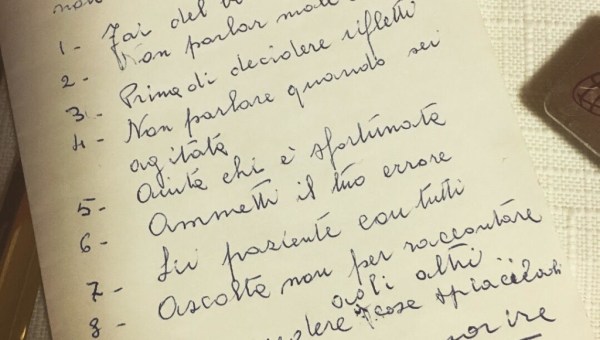 non
1 - Fai del
2 - Non parlar male
3 - Prima di decidere rifletti
4 - Non parlare quando sei
agitata
5 - Aiuta chi è sfortunata
6 - Ammetti il tuo errore
7 - Sii paziente con tutti
8 - Ascolta non per raccontare
agli altri
cose